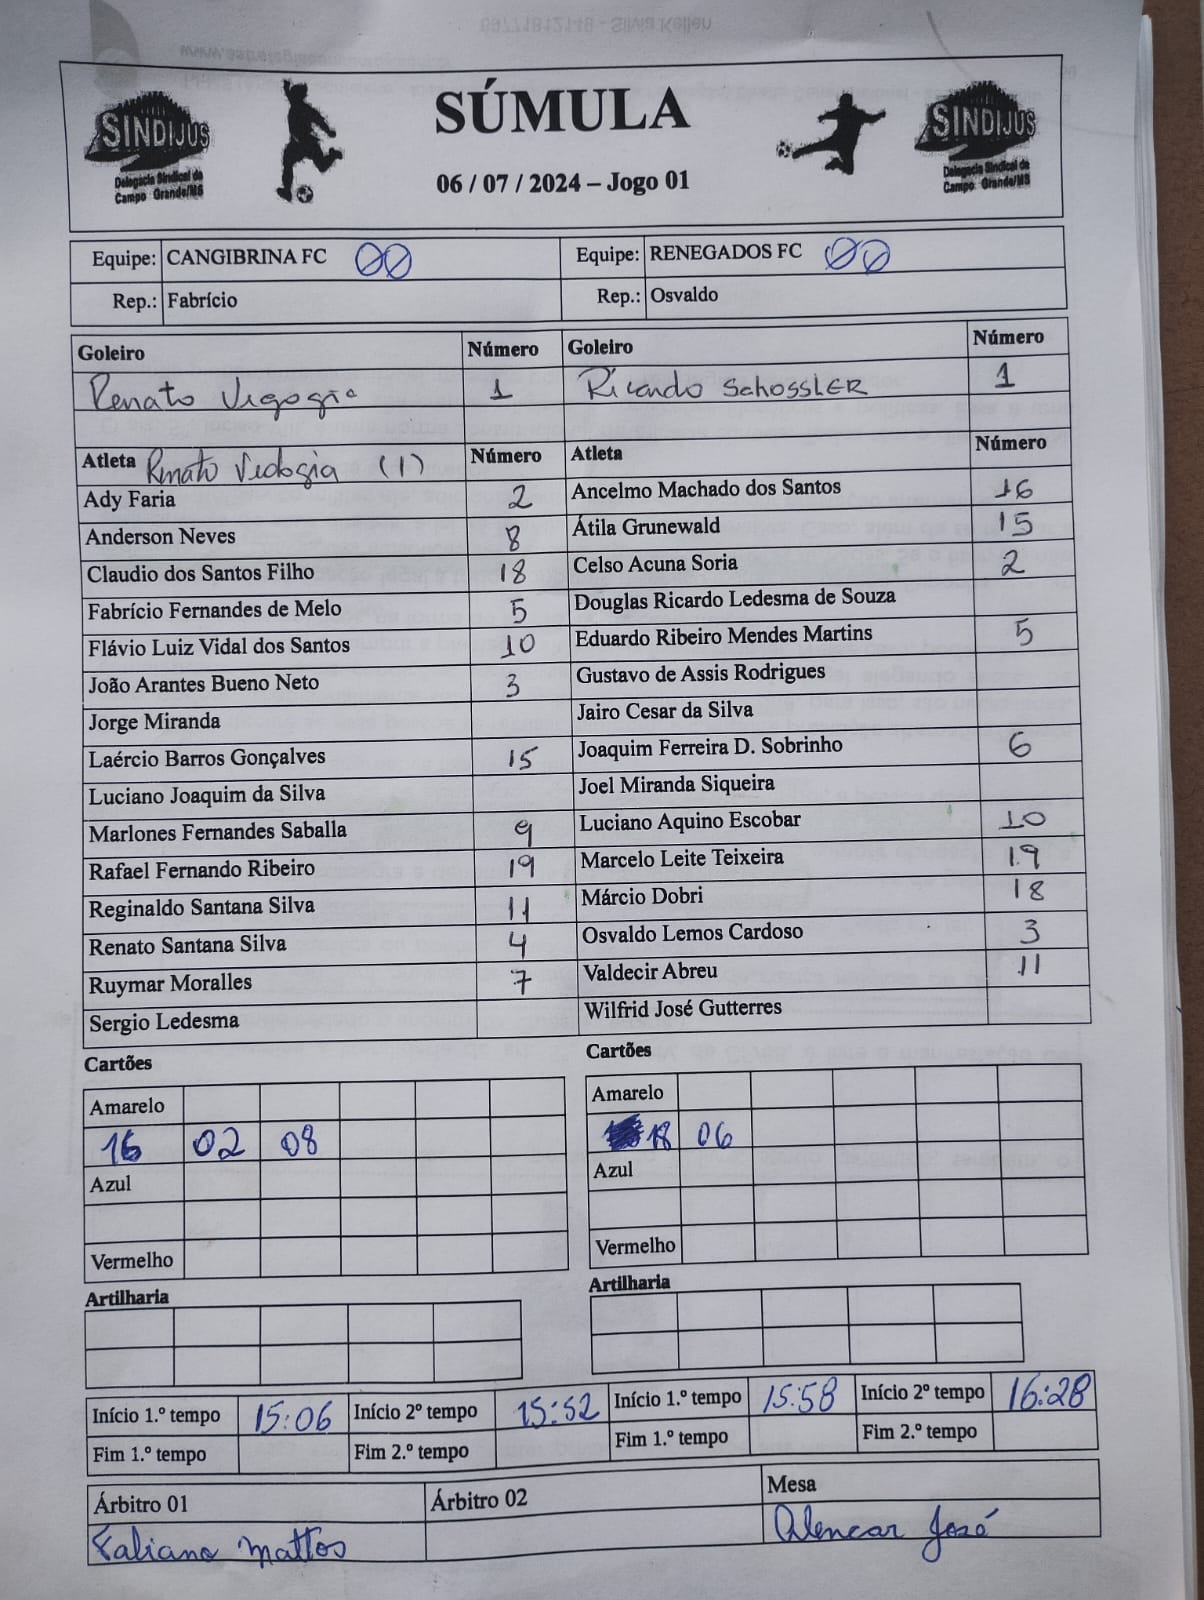 SÚMULA
06 / 07 / 2024 – Jogo 01
SINDIJUS
Delegacia Sindical de
Campo Grande/MS
SINDIJUS
Delegacia Sindical de
Campo Grande/MS
Equipe: CANGIBRINA FC 00 Equipe: RENEGADOS FC 00
Rep.: Fabrício Rep.: Osvaldo
Goleiro Número Goleiro Número
Renato 1 Ricardo SchossLER 1
Atleta Renato (1) Número Atleta Número
Ady Faria 2 Ancelmo Machado dos Santos 16
Anderson Neves 8 Átila Grunewald 15
Claudio dos Santos Filho 18 Celso Acuna Soria 2
Fabrício Fernandes de Melo 5 Douglas Ricardo Ledesma de Souza
Flávio Luiz Vidal dos Santos 10 Eduardo Ribeiro Mendes Martins 5
João Arantes Bueno Neto 3 Gustavo de Assis Rodrigues
Jorge Miranda Jairo Cesar da Silva
Laércio Barros Gonçalves 15 Joaquim Ferreira D. Sobrinho 6
Luciano Joaquim da Silva Joel Miranda Siqueira
Marlones Fernandes Saballa 9 Luciano Aquino Escobar 10
Rafael Fernando Ribeiro 19 Marcelo Leite Teixeira 19
Reginaldo Santana Silva 11 Márcio Dobri 18
Renato Santana Silva 4 Osvaldo Lemos Cardoso 3
Ruymar Moralles 7 Valdecir Abreu 11
Sergio Ledesma Wilfrid José Gutterres
Cartões Cartões
Amarelo Amarelo
16 02 08 18 06
Azul Azul
Vermelho Vermelho
Artilharia Artilharia
Início 1.º tempo 15:06 Início 2º tempo 15:52 Início 1.º tempo 15:58 Início 2º tempo 16:28
Fim 1.º tempo Fim 2.º tempo Fim 1.º tempo Fim 2.º tempo
Árbitro 01 Árbitro 02 Mesa
Faliano Mattos Alencar José